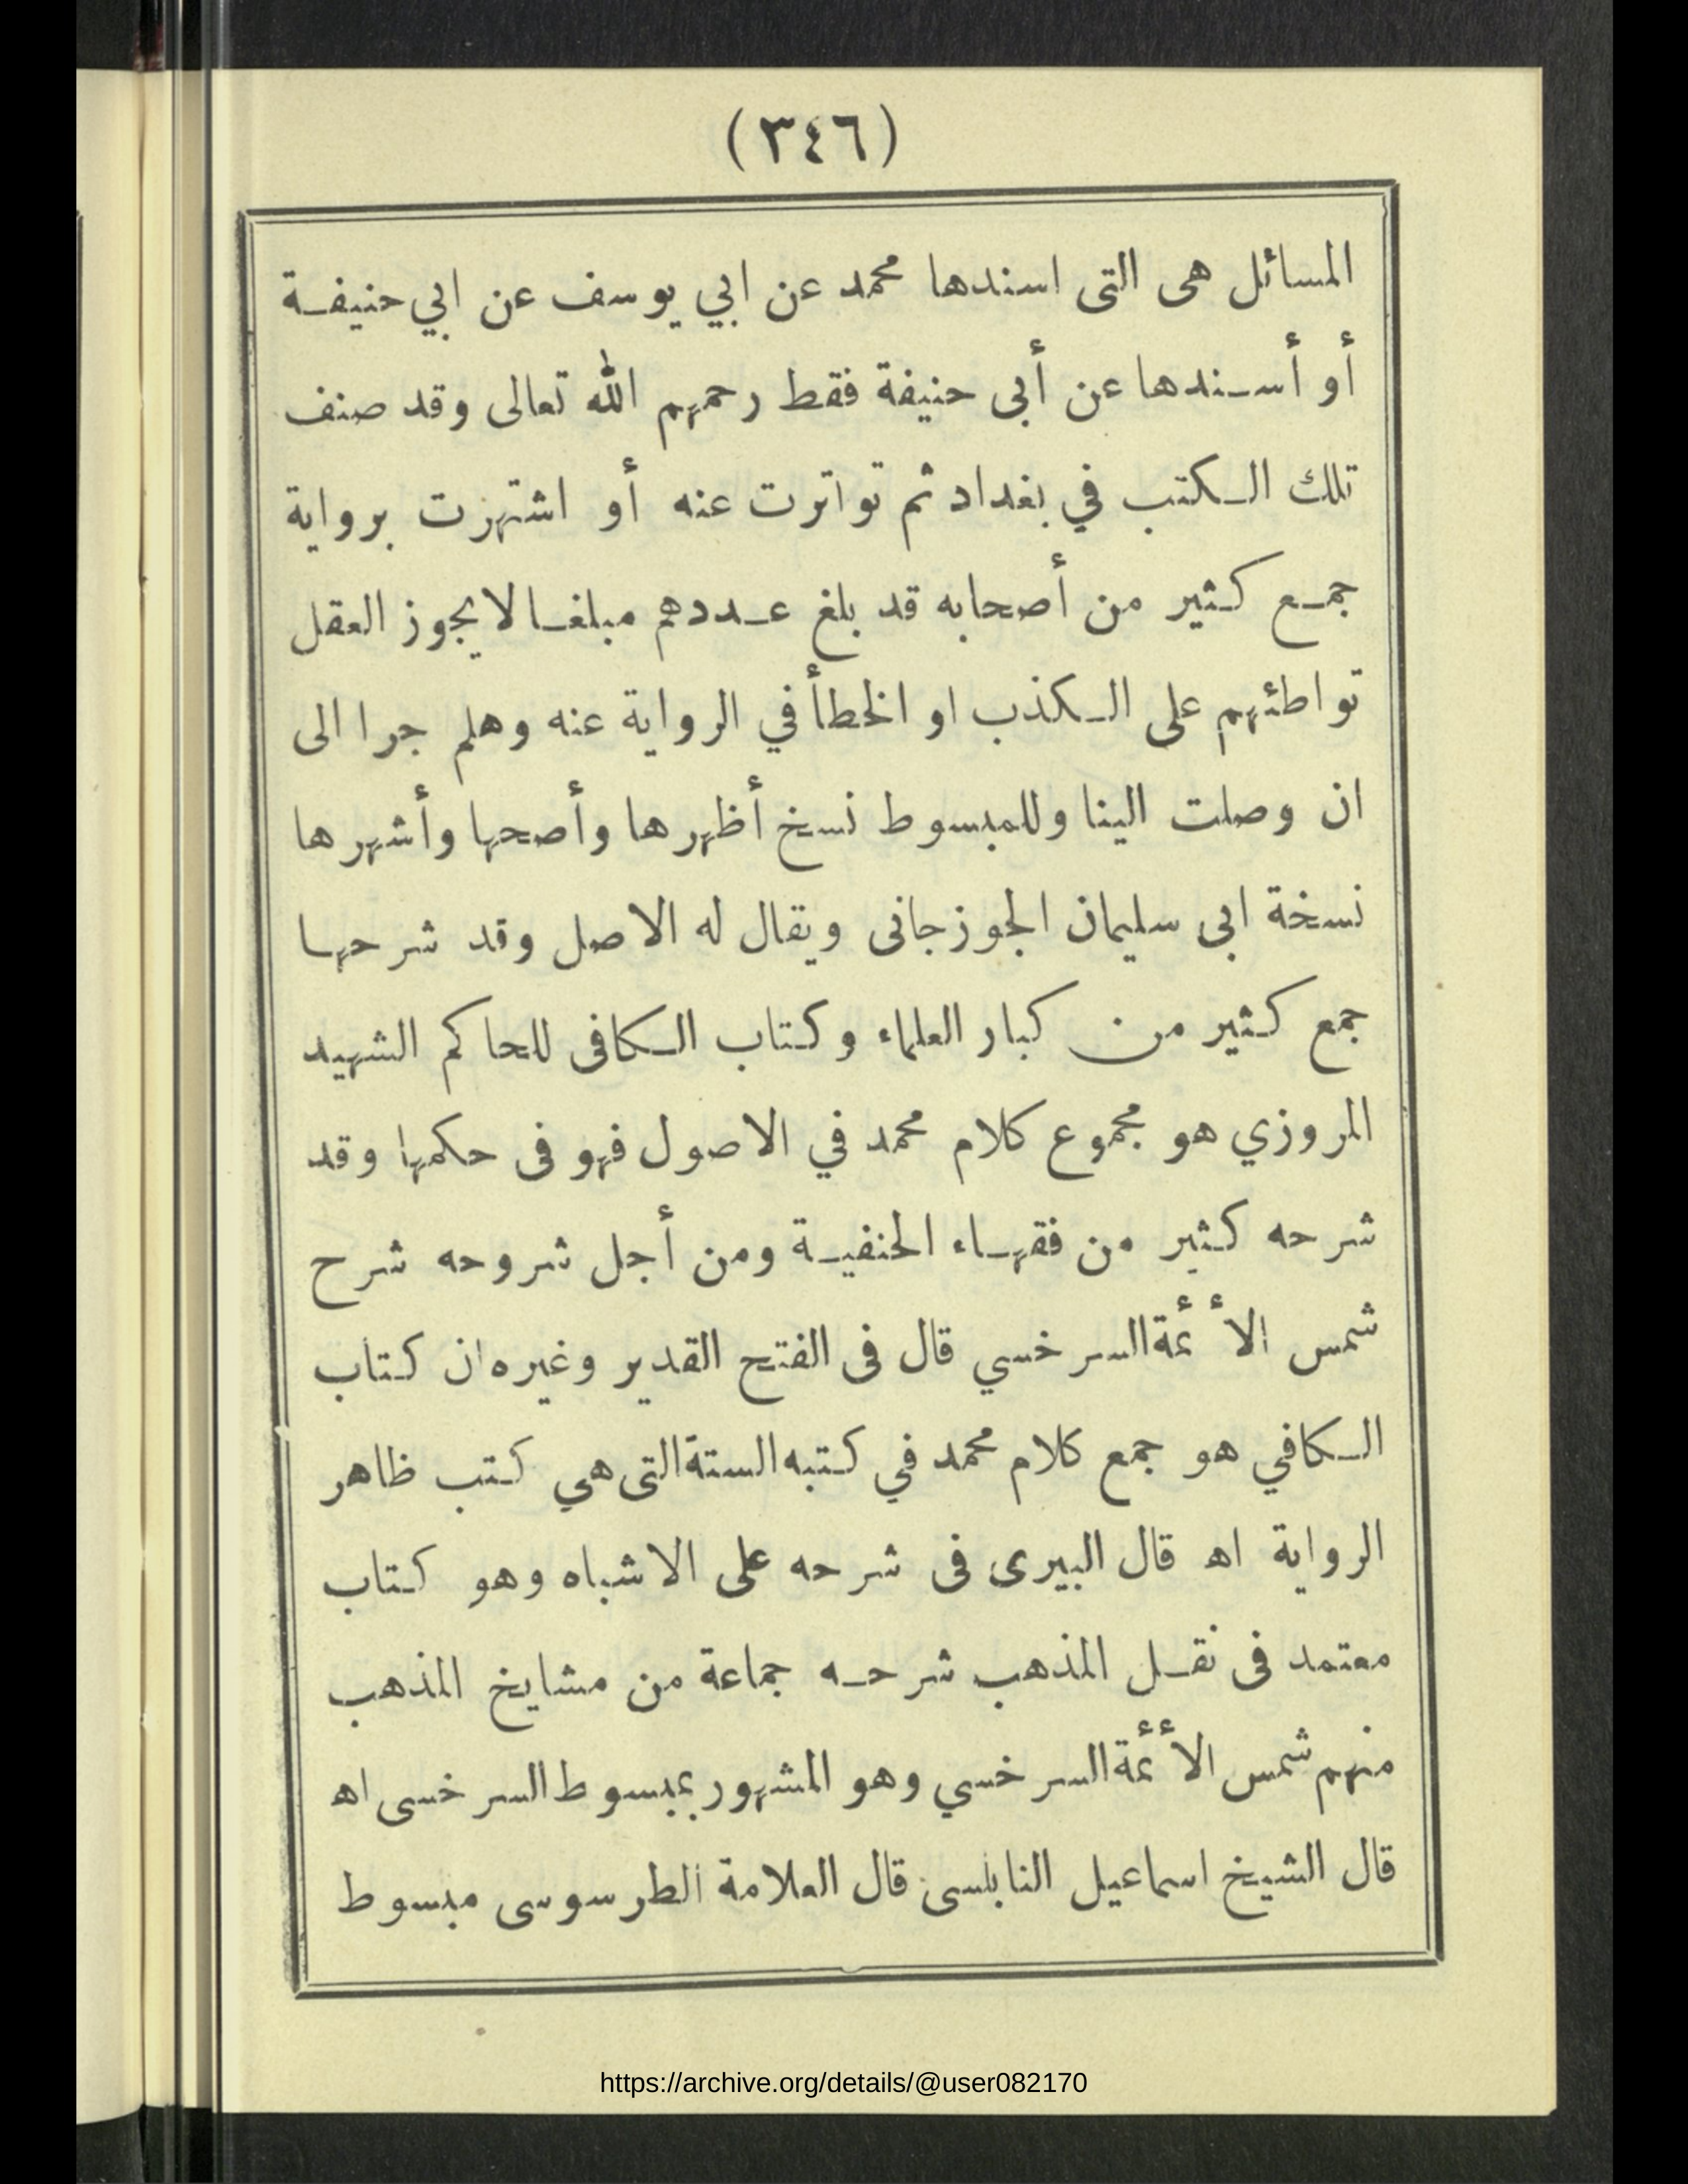 (٣٤٦)
المسائل هى التى اسندها محمد عن ابي يوسف عن ابي حنيفة
أو أسندها عن أبى حنيفة فقط رحمهم الله تعالى وقد صنف
تلك الكتب في بغداد ثم تواترت عنه أو اشتهزت برواية
جمع كثير من أصحابه قد بلغ عددهم مبلغا لا يجوز العقل
تواطئهم على الكذب او الخطأ في الرواية عنه وهلم جرا الى
ان وصلت الينا وللمبسوط نسخ أظهرها وأصحها وأشهرها
نسخة ابى سليمان الجوزجانى ويقال له الاصل وقد شرحها
جمع كثير من كبار العلماء وكتاب الكافى للحاكم الشهيد
المروزي هو مجموع كلام محمد في الاصول فهو فى حكمها وقد
شرحه كثير من فقهاء الحنفية ومن أجل شروحه شرح
شمس الأئمة السرخسي قال فى الفتح القدير وغيره ان كتاب
الكافي هو جمع كلام محمد في كتبه الستة التى هي كتب ظاهر
الرواية اه قال البيرى فى شرحه على الاشباه وهو كتاب
معتمد فى نقل المذهب شرحه جماعة من مشايخ المذهب
منهم شمس الأئمة السرخسي وهو المشهور بمبسوط السرخسى اه
قال الشيخ اسماعيل النابلسى قال العلامة الطرسوسى مبسوط
https://archive.org/details/@user082170